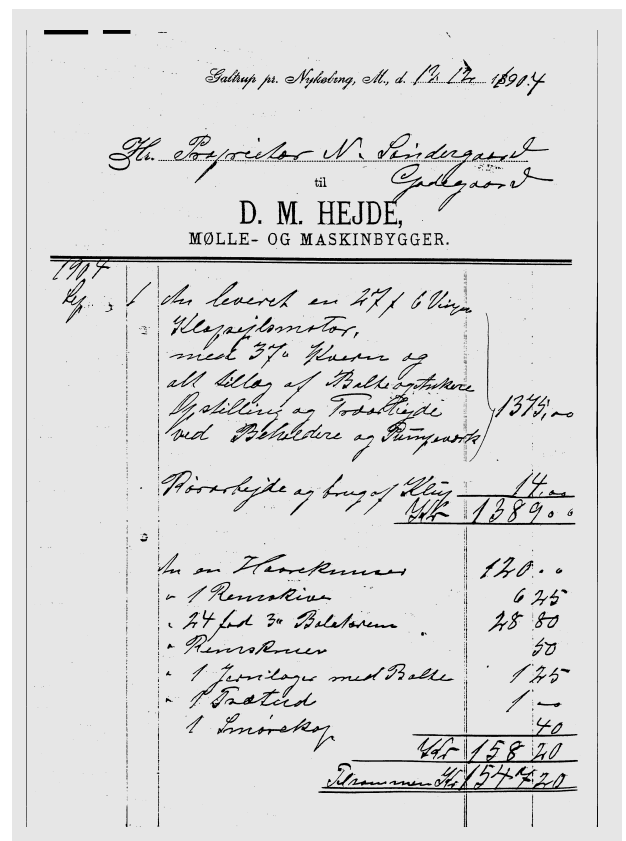 Galtrup pr. Nykøbing, M., d. 12/12 1890.4
Hr. Proprietær N. Søndergaard
Godegaard
til
D. M. HEJDE,
MØLLE- OG MASKINBYGGER.
1904
Sep. 1 An leveret en 27 f 6 Vinger
Klapsejlsmotor,
med 37" Kværn og
alt tillæg af Bolte og Ankere
Opstilling og Træarbejde 1375,00
ved Beholdere og Pumpeværk
Rørarbejde og brug af 14,00
Kr 1389 00
An en Havreknuser 120 00
" 1 Remskive 6 25
" 24 fod 3" 28 80
" Remskruer 50
" 1 Jernilager med Bolte 1 25
" 1 1 00
1 Smørekop 40
Kr 158 20
Tilsammen Kr 1547 20